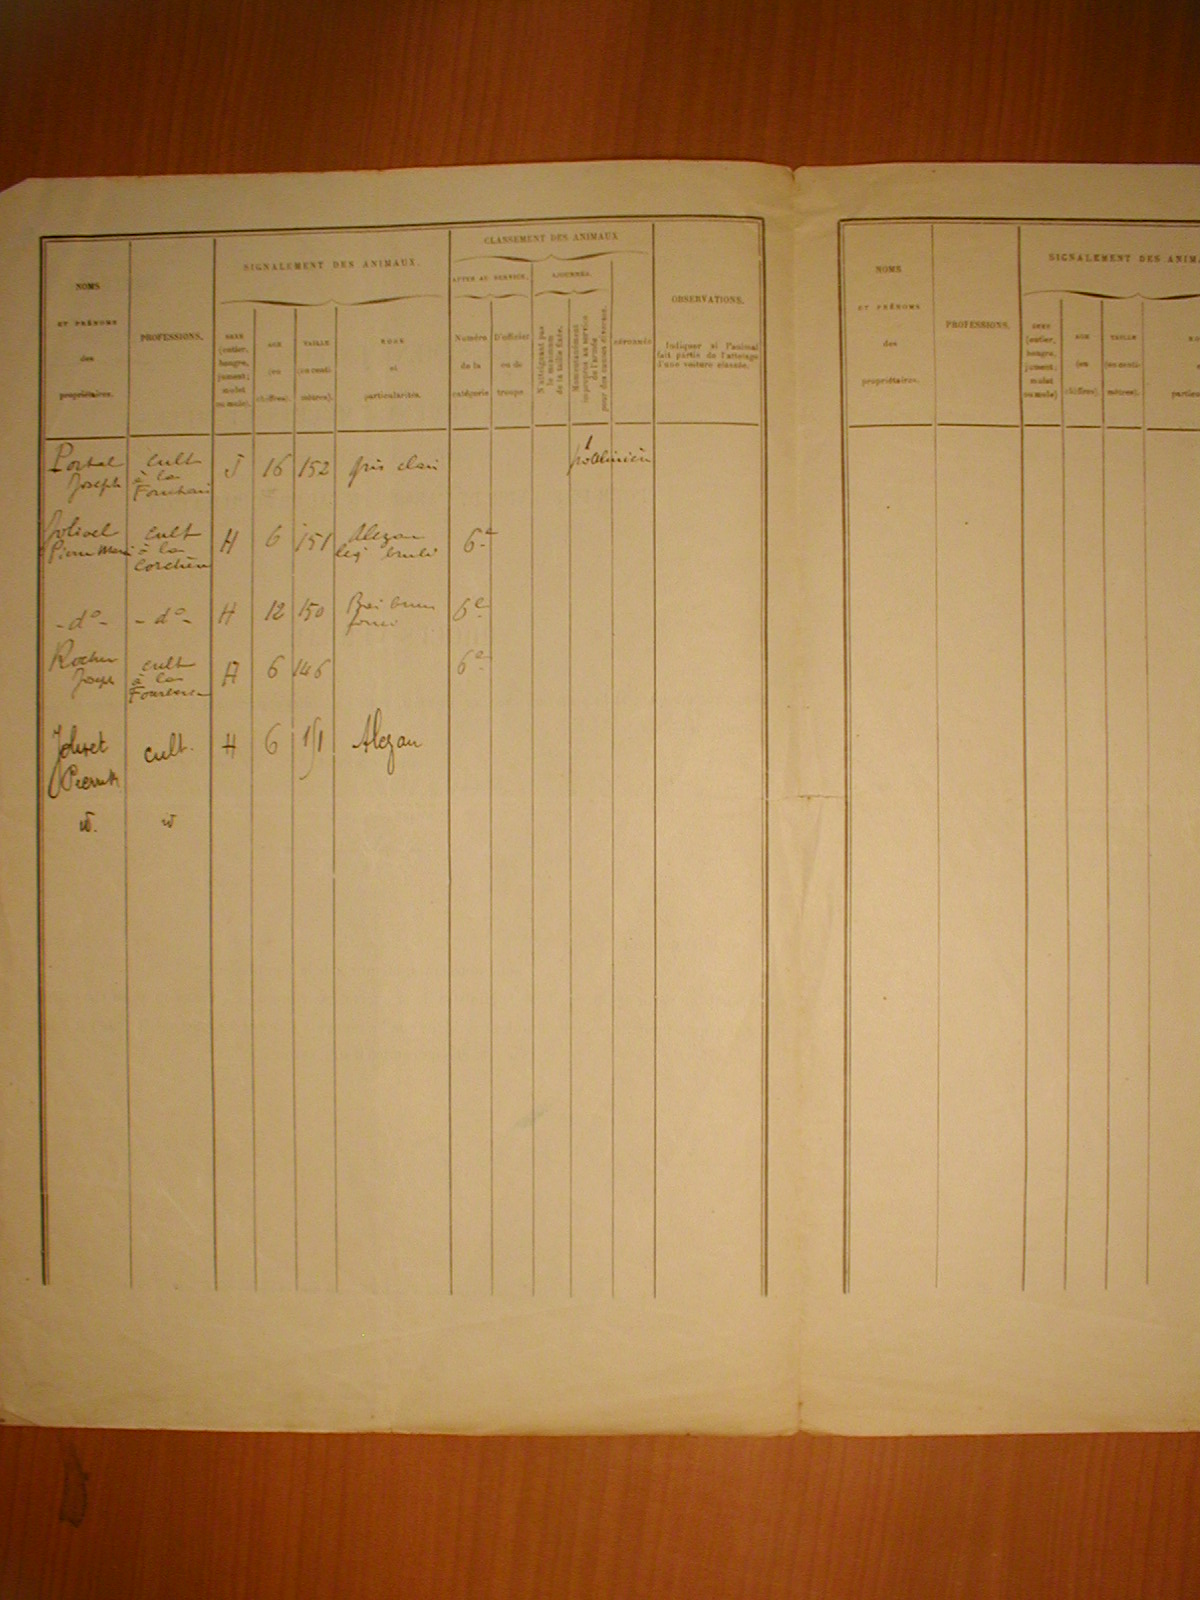 CLASSEMENT DES ANIMAUX
SIGNALEMENT DES ANIMAUX.
APTES AU SERVICE.
AJOURNÉS.
NOMS
ET PRÉNOMS
des
propriétaires.
PROFESSIONS.
SEXE
(entier,
hongre,
jument;
mulet
ou mule).
AGE
(en
chiffres).
TAILLE
(en centi-
mètres).
ROBE
et
particularités.
Numéro
de la
catégorie
D'officier
ou de
troupe
N'atteignant pas
le maximum
de la taille fixée.
Momentanément
impropres au service
de l'armée
pour des causes diverses.
RÉFORMÉS
OBSERVATIONS.
Indiquer si l'animal
fait partie de l'attelage
d'une voiture classée.
Portal
Joseph
cult
à la
J 16 152 gris clair
1
Jolivel
Pierre Marie
cult
à la
H 6 151 Alezan
brulé
6e
- do - - do - H 12 150 Bai brun
6e
Rocher
Joseph
cult
à la
H 6 146 6e
Jolivet
Pierre
cult. H 6 151 Alezan
id. id
NOMS
ET PRÉNOMS
des
propriétaires.
PROFESSIONS.
SIGNALEMENT DES ANIMA
SEXE
(entier,
hongre,
jument;
mulet
ou mule)
AGE
(en
chiffres).
TAILLE
(en centi-
mètres).
RO
particu